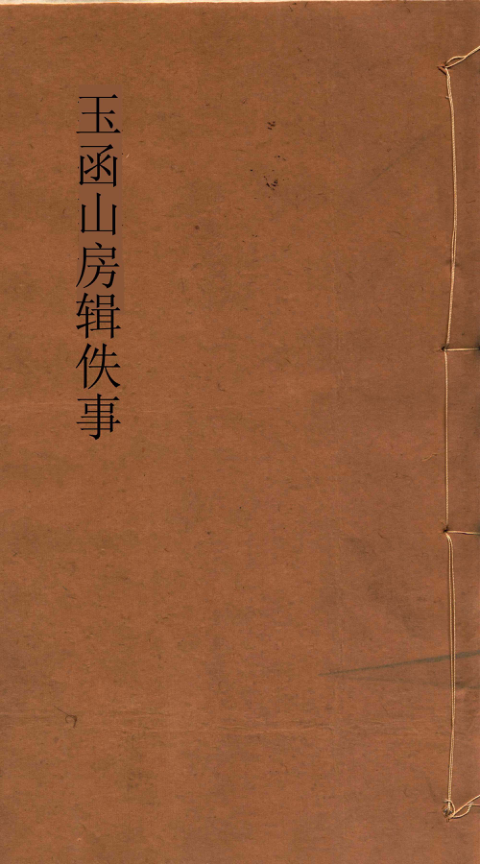 玉函山房辑佚事